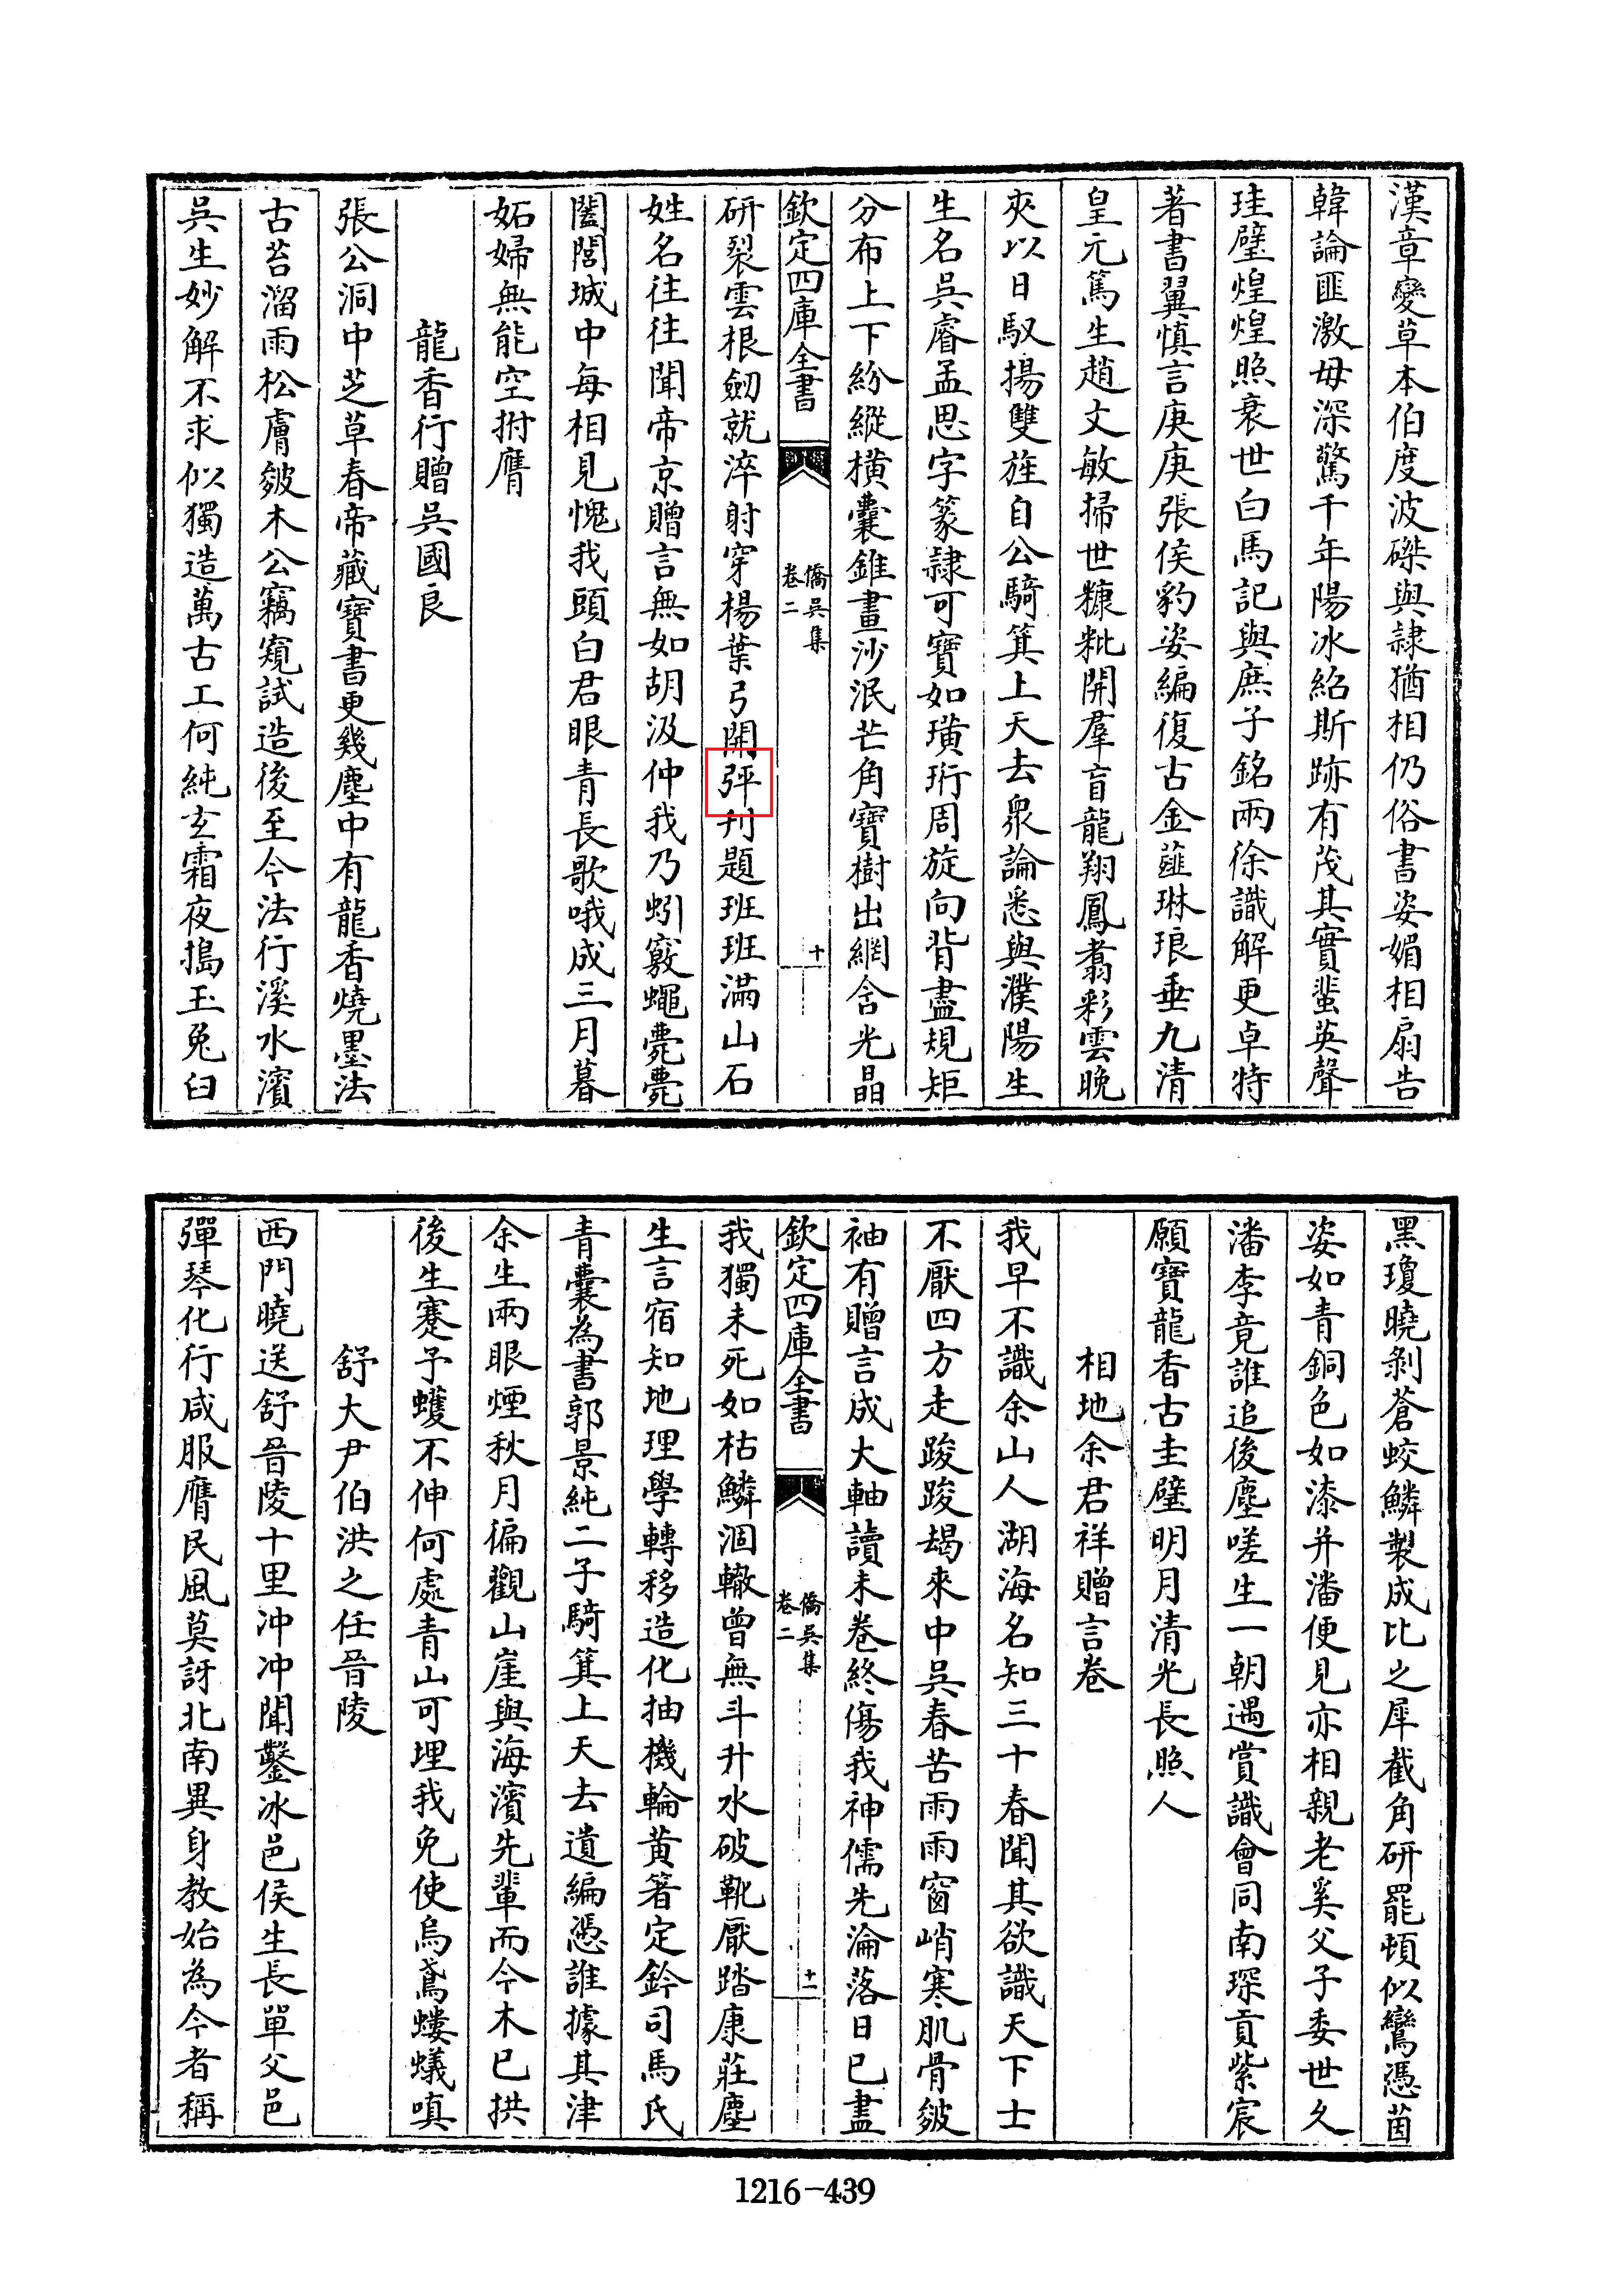 漢章變草本伯度波磔與隷猶相仍俗書姿媚相扇告
韓論匪激毋深驚千年陽冰紹斯跡有茂其實蜚英聲
珪璧煌煌照衰世白馬記與庶子銘兩徐識解更卓特
著書翼慎言庚庚張侯豹姿編復古金薤琳琅垂九清
皇元篤生趙文敏掃世糠粃開羣盲龍翔鳳翥彩雲晚
夾以日馭揚雙旌自公騎箕上天去衆論悉與濮陽生
生名吳睿孟思字篆隷可寶如璜珩周旋向背盡規矩
分布上下紛縱横囊錐畫沙泯芒角寳樹出網含光晶
欽定四庫全書
僑吳集
卷二
十
研裂雲根劒就淬射穿楊葉弓開弸刋題班班滿山石
姓名往往聞帝京贈言無如胡汲仲我乃蚓竅蠅薨薨
闔閭城中每相見愧我頭白君眼青長歌哦成三月暮
妬婦無能空拊膺
龍香行贈吳國良
張公洞中芝草春帝藏寶書更幾塵中有龍香燒墨法
古苔溜雨松膚皴木公竊窺試造後至今法行溪水濱
吳生妙解不求似獨造萬古工何純玄霜夜搗玉兔臼
黑瓊曉剝蒼蛟鱗製成比之犀截角研罷頓似鸞憑茵
姿如青銅色如漆并潘便見亦相親老奚父子委世久
潘李竟誰追後塵嗟生一朝遇賞識會同南琛貢紫宸
願寶龍香古圭璧明月清光長照人
相地余君祥贈言卷
我早不識余山人湖海名知三十春聞其欲識天下士
不厭四方走踆踆朅來中吳春苦雨雨窗峭寒肌骨皴
袖有贈言成大軸讀未卷終傷我神儒先淪落日已盡
欽定四庫全書
僑吳集
卷二
十一
我獨未死如枯鱗涸轍曾無斗升水破靴厭踏康莊塵
生言宿知地理學轉移造化抽機輪黄箬定鈐司馬氏
青囊為書郭景純二子騎箕上天去遺編憑誰據其津
余生兩眼煙秋月徧觀山崖與海濱先輩而今木已拱
後生蹇予蠖不伸何處青山可埋我免使烏鳶螻蟻嗔
舒大尹伯洪之任晉陵
西門曉送舒晉陵十里冲冲聞鑿冰邑侯生長單父邑
彈琴化行咸服膺民風莫訝北南異身教始為今者稱
1216-439